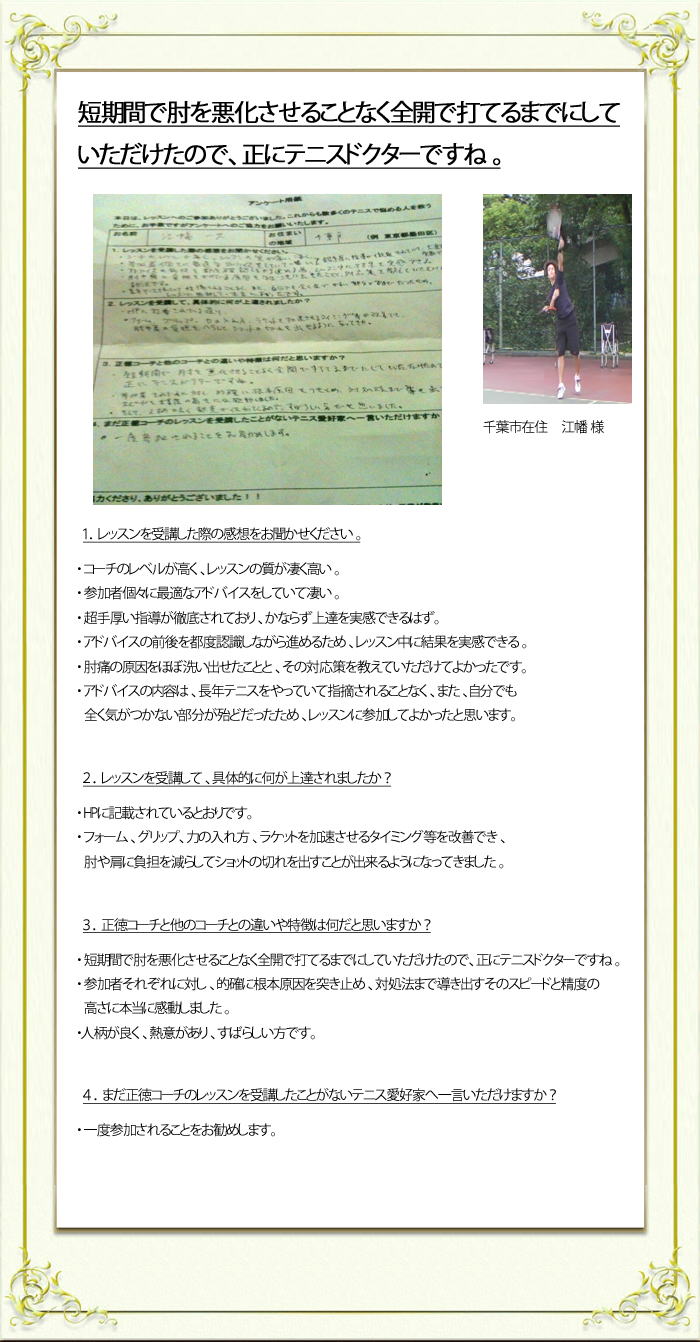 短期間で肘を悪化させることなく全開で打てるまでにして
いただけたので、正にテニスドクターですね。
アンケート用紙
本日は、レッスンへのご参加ありがとうございました。これからも数多くのテニスで悩める人を救う
ために、お手数ですがアンケートへのご協力をお願いいたします。
お名前
お住まい
の地域
千葉市
(例 東京都墨田区)
1. レッスンを受講した際の感想をお聞かせください。
2. レッスンを受講して、具体的に何が上達されましたか？
3. 正徳コーチと他のコーチとの違いや特徴は何だと思いますか？
まだ正徳コーチのレッスンを受講したことがないテニス愛好家へ一言いただけますか
・一度参加されることをお勧めします。
力くださり、ありがとうございました！！
千葉市在住　江幡 様
1. レッスンを受講した際の感想をお聞かせください。
・コーチのレベルが高く、レッスンの質が凄く高い。
・参加者個々に最適なアドバイスをしていて凄い。
・超手厚い指導が徹底されており、かならず上達を実感できるはず。
・アドバイスの前後を都度認識しながら進めるため、レッスン中に結果を実感できる。
・肘痛の原因をほぼ洗い出せたことと、その対応策を教えていただけてよかったです。
・アドバイスの内容は、長年テニスをやっていて指摘されることなく、また、自分でも
全く気がつかない部分が殆どだったため、レッスンに参加してよかったと思います。
2. レッスンを受講して、具体的に何が上達されましたか？
・HPに記載されているとおりです。
・フォーム、グリップ、力の入れ方、ラケットを加速させるタイミング等を改善でき、
肘や肩に負担を減らしてショットの切れを出すことが出来るようになってきました。
3. 正徳コーチと他のコーチとの違いや特徴は何だと思いますか？
・短期間で肘を悪化させることなく全開で打てるまでにしていただけたので、正にテニスドクターですね。
・参加者それぞれに対し、的確に根本原因を突き止め、対処法まで導き出すそのスピードと精度の
高さに本当に感動しました。
・人柄が良く、熱意があり、すばらしい方です。
4. まだ正徳コーチのレッスンを受講したことがないテニス愛好家へ一言いただけますか？
・一度参加されることをお勧めします。